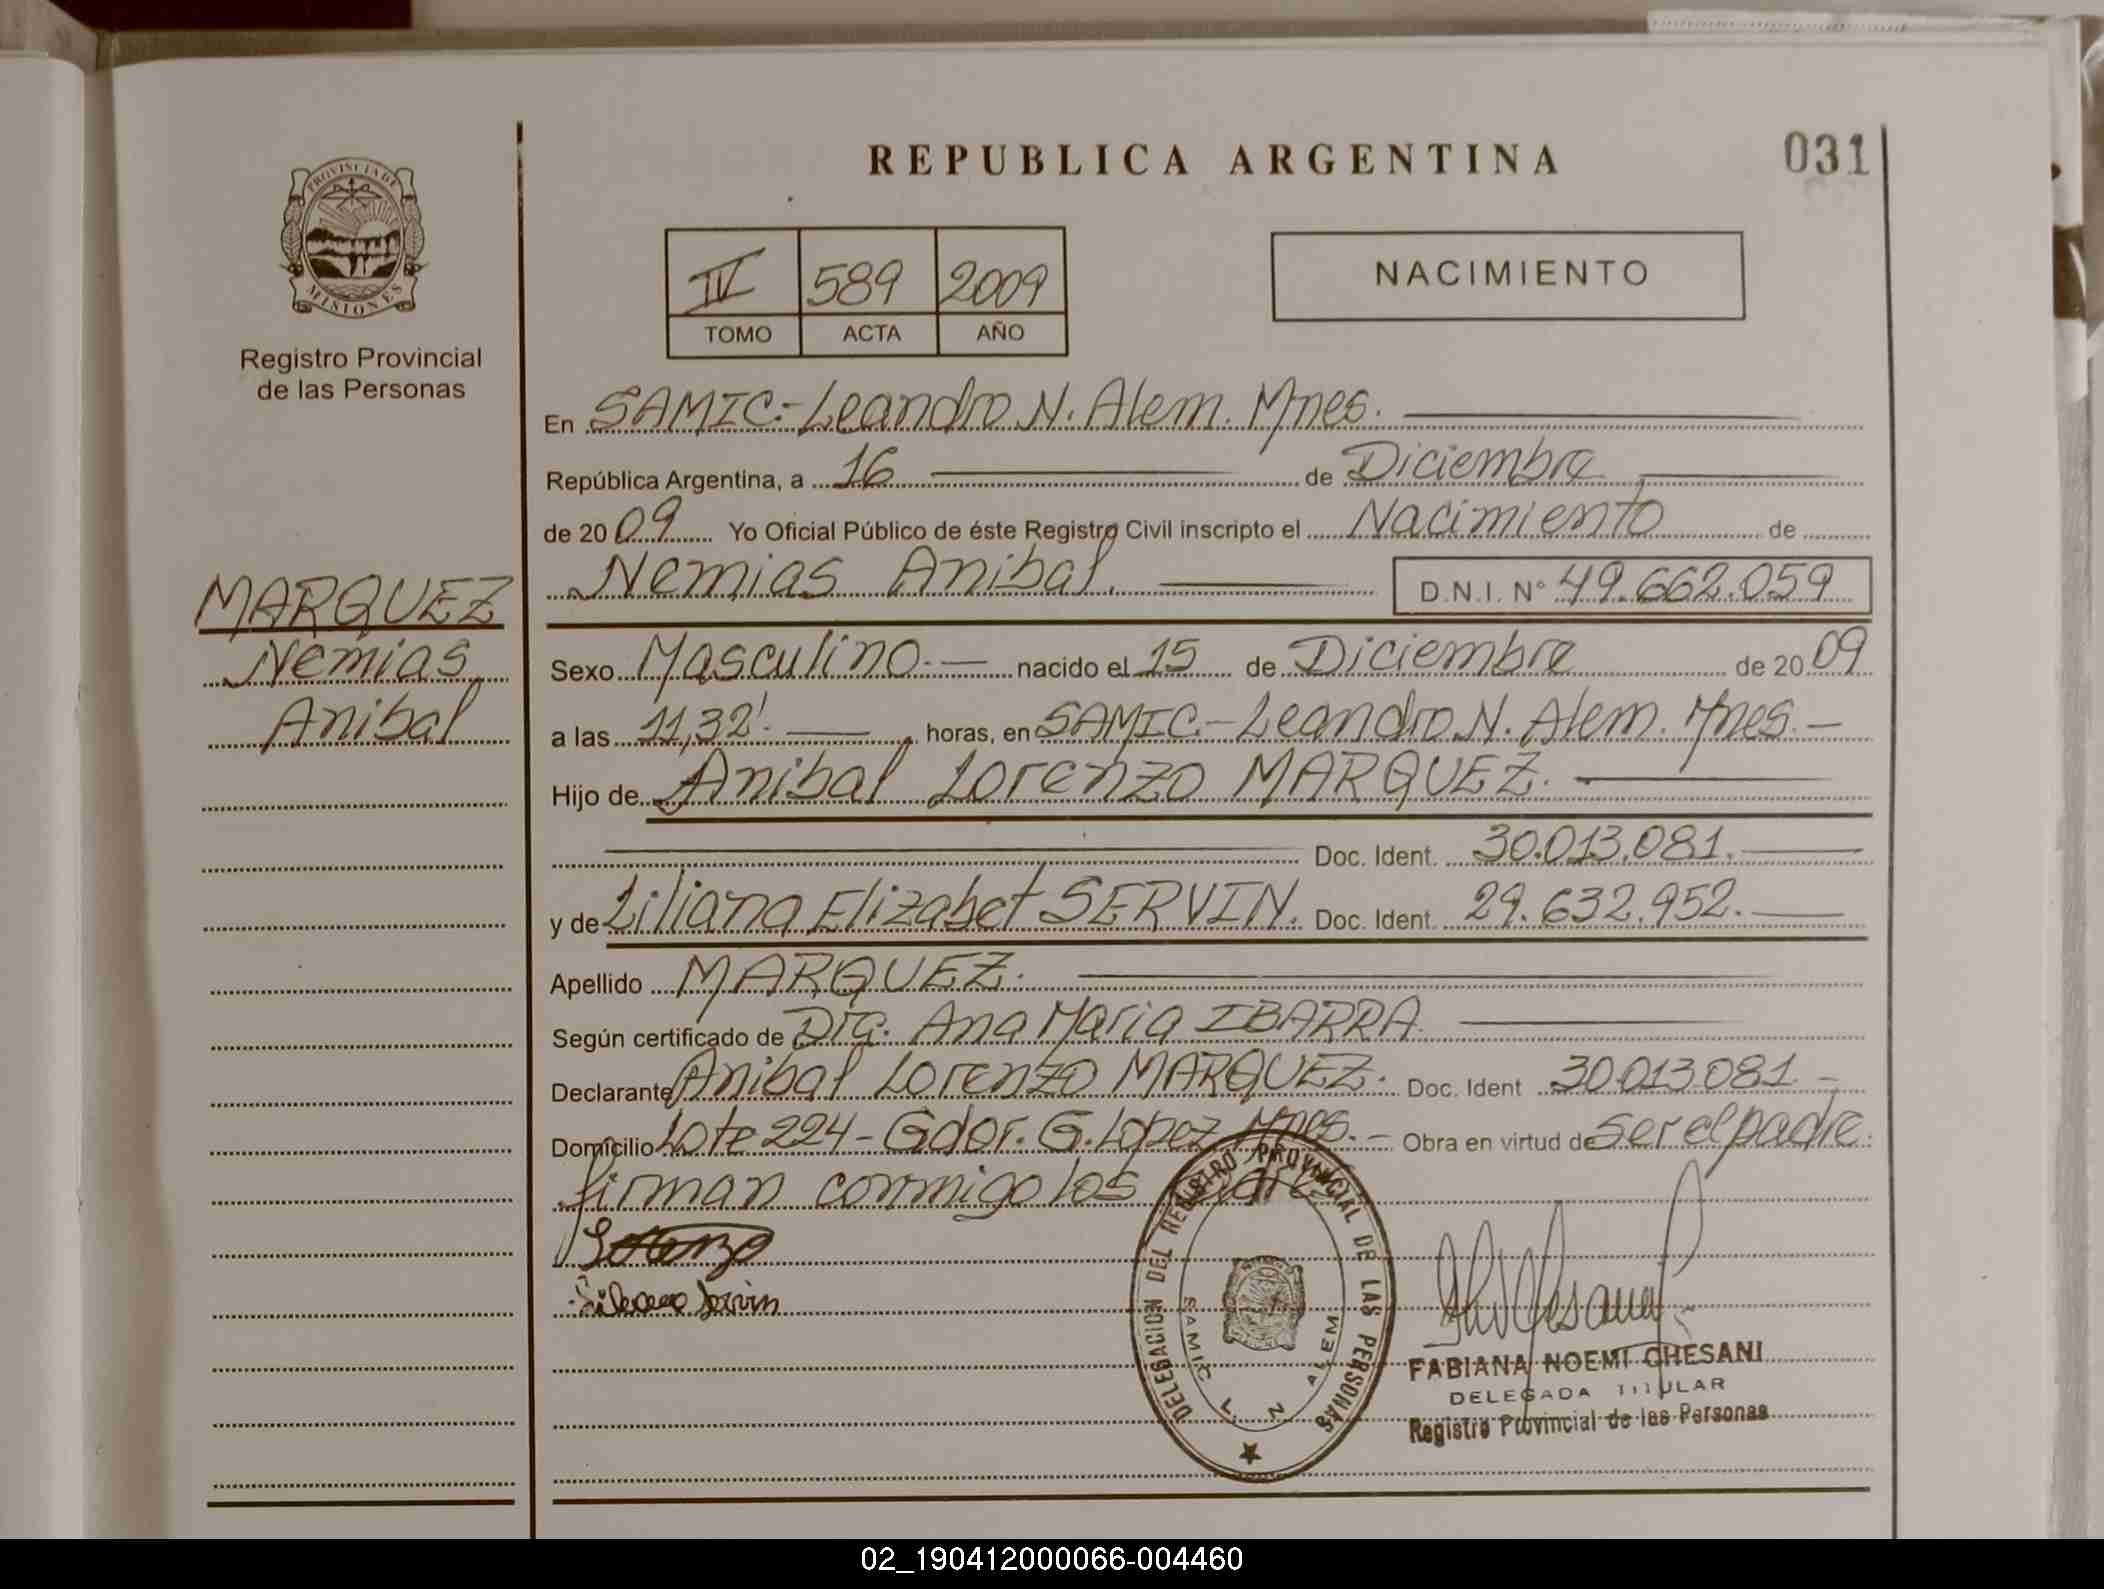 REPUBLICA ARGENTINA
031
PROVINCIA DE
MISIONES
Registro Provincial
de las Personas
IV 589 2009
TOMO ACTA AÑO
NACIMIENTO
En SAMIC.- Leandro N. Alem. Mnes.
República Argentina, a 16 de Diciembre
de 2009 Yo Oficial Público de éste Registro Civil inscripto el Nacimiento de
Nemias Anibal. D.N.I. N° 49.662.059
MARQUEZ
Nemias
Anibal
Sexo Masculino.- nacido el 15 de Diciembre de 2009
a las 11,32'. horas, en SAMIC.- Leandro N. Alem. Mnes.-
Hijo de Anibal Lorenzo MARQUEZ.
Doc. Ident. 30.013.081.
y de Liliana Elizabet SERVIN. Doc. Ident. 29.632.952.
Apellido MARQUEZ.
Según certificado de Dra. Ana Maria IBARRA
Declarante Anibal Lorenzo MARQUEZ. Doc. Ident 30.013.081 -
Domicilio Lote 224 - Gdor. G. Lopez Mnes.- Obra en virtud de Ser el padre.
firman conmigo los
DELEGACION DEL REGISTRO PROVINCIAL DE LAS PERSONAS
SAMIC L. N ALEM
FABIANA NOEMI GHESANI
DELEGADA TITULAR
Registro Provincial de las Personas
02_190412000066-004460